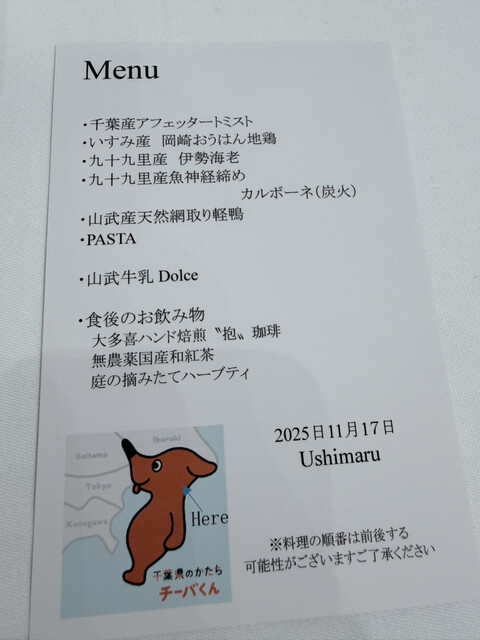 Menu
・千葉産アフェッタートミスト
・いすみ産 岡崎おうはん地鶏
・九十九里産 伊勢海老
・九十九里産魚神経締め
カルボーネ(炭火)
・山武産天然網取り軽鴨
・PASTA
・山武牛乳 Dolce
・食後のお飲み物
大多喜ハンド焙煎〝抱〟珈琲
無農薬国産和紅茶
庭の摘みたてハーブティ
2025日11月17日
Ushimaru
※料理の順番は前後する
可能性がございますご了承ください
Ibaraki
Saitama
Tokyo
Kanagawa
Here
千葉県のかたち
チーバくん